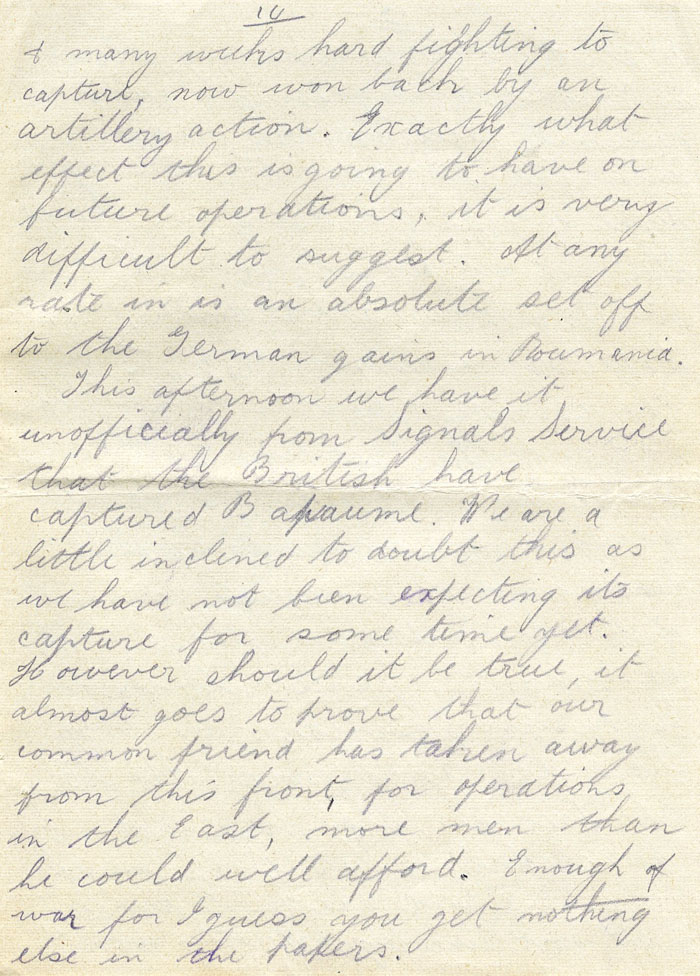 14
& many weeks hard fighting to
capture, now won back by an
artillery action. Exactly what
effect this is going to have on
future operations, it is very
difficult to suggest. At any
rate in is an absolute set off
to the German gains in Roumania.
This afternoon we have it
unofficially from Signals Service
that the British have
captured Bapaume. We are a
little inclined to doubt this as
we have not been expecting its
capture for some time yet.
However should it be true, it
almost goes to prove that our
common friend has taken away
from this front, for operations
in the East, more men than
he could well afford. Enough of
war for I guess you get nothing
else in the papers.